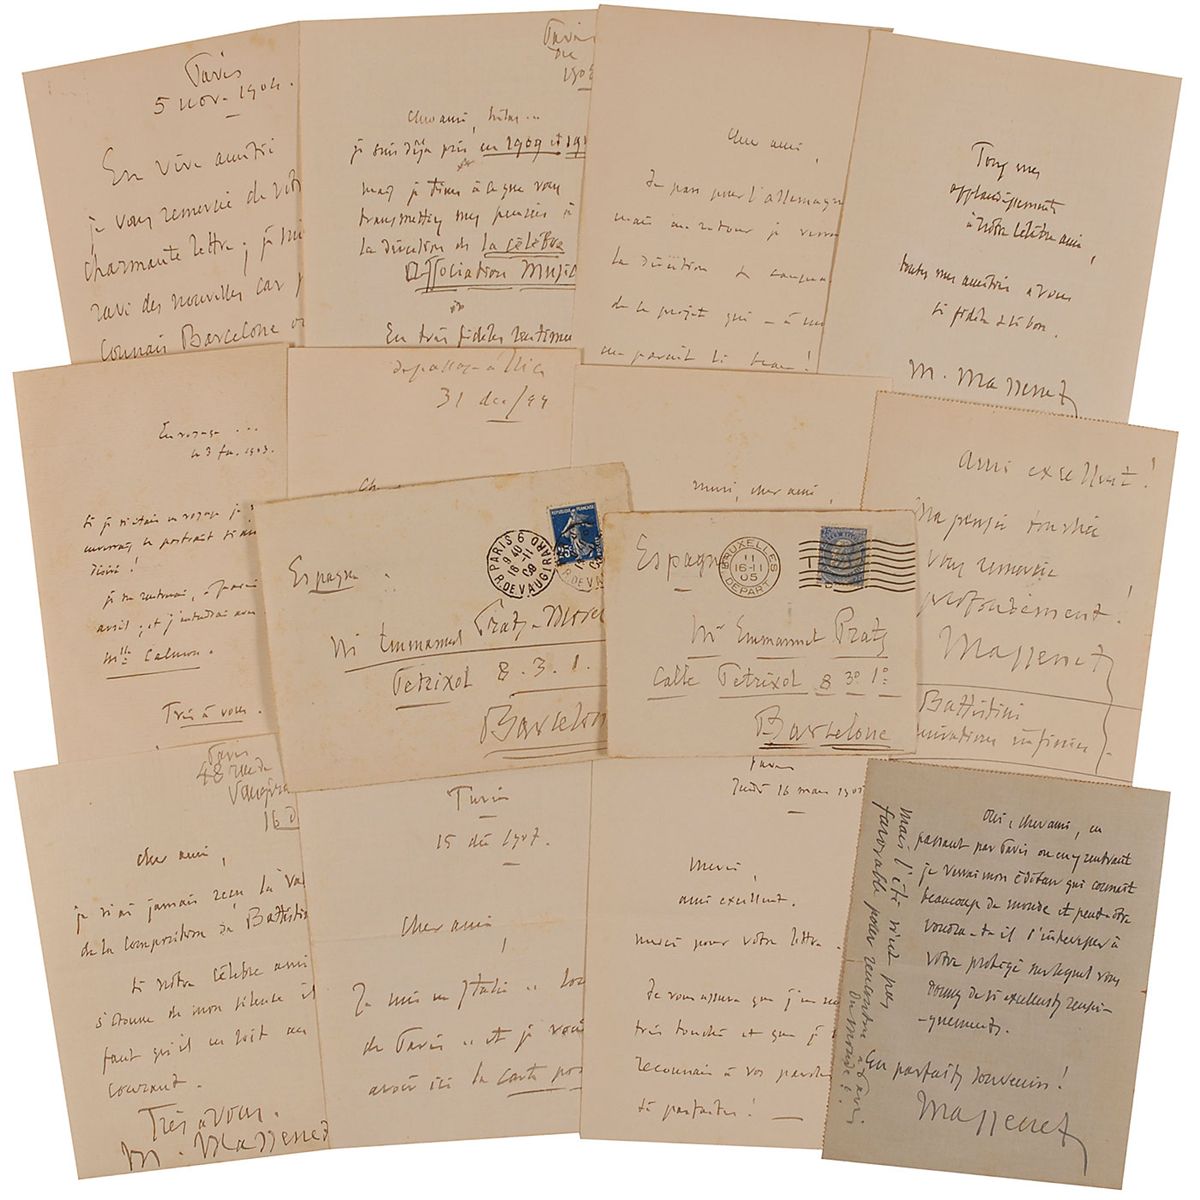 Paris
5 nov. 1904.
En vive amitié
je vous remercie de votre
charmante lettre ; j'étais
ravi des nouvelles car je
connais Barcelone
Paris
Cher ami, hélas...
je suis déjà pris en 1909 et 191
mais je tiens à ce que vous
transmettiez mes pensées à
la direction de la célèbre
Association Musica
En très fidèles sentimen
Cher ami,
Je pars pour l'Allemagne
mais au retour je verrai
la direction
de ce projet qui - à m
me paraît si beau !
Tous mes
applaudissements
à notre célèbre ami,
toutes mes amitiés à vous
si fidèle & si bon.
M. Massenet
En voyage ...
le 3 fév. 1903.
Si je n'étais en voyage je
enverrais le portrait si ai
désiré !
Je ne rentrerai, à Paris
avril, et j'entendrai avec
Mlle Calmon.
Très à vous.
de passage à Nice
31 déc/99
Merci, cher ami,
Ami excellent !
Ma pensée touchée
vous remercie
profondément !
Massenet
Battistini
admirations infinies
REPUBLIQUE FRANÇAISE
25c
PARIS 6
R. DE VAUGIRARD
9 40
16-11
08
Espagne
Mr Emmanuel Pratz-Morel
Petrixol 8. 3. 1.
Barcelon
BRUXELLES
11
16-11
05
DEPART
Espagne
Mr Emmanuel Pratz
Calle Petrixol 8 3º 1º
Barcelone
Paris
48 rue de
Vaugira
16 d
Cher ami,
je n'ai jamais reçu la
de la composition de Battisti
Si notre célèbre ami
s'étonne de mon silence il
faut qu'il en soit au
courant.
Très à vous.
M. Massenet
Turin
15 déc 1907.
Cher ami
!
Je suis en Italie .. loin
de Paris .. et je
avoir ici la carte pos
Paris
Jeudi 16 mars 190
Merci,
ami excellent.
merci pour votre lettre.
Je vous assure que j'en suis
très touché et que je
reconnais à vos paroles
si parfaites ! —
Oui, cher ami, en
passant par Paris ou en y rentrant
je verrai mon éditeur qui connaît
beaucoup de monde et peut-être
voudra-t-il s'intéresser à
votre protégé sur lequel vous
donnez de si excellents rensei-
-gnements.
En parfaits souvenirs !
Massenet
Mais l'été n'est pas
favorable pour rencontrer à Paris
du monde !